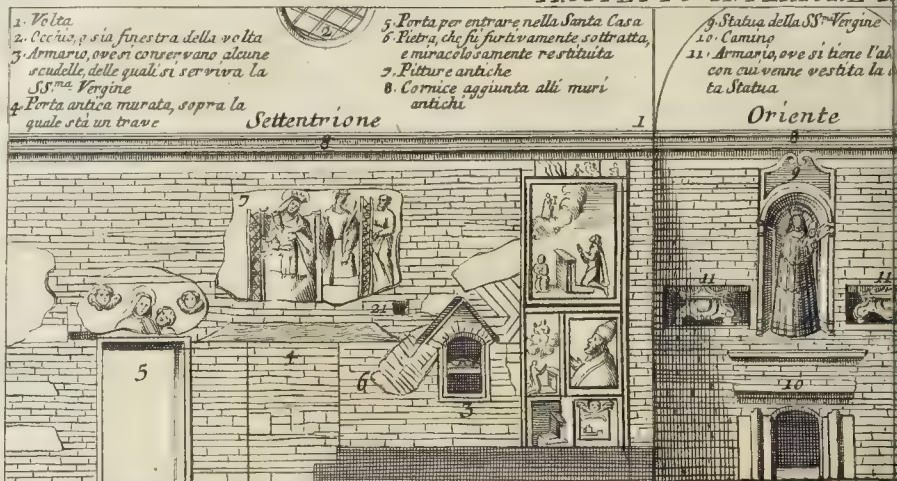 1. Volta
2. Occhio, o sia finestra della volta
3. Armario, ove si conservano alcune
scudelle, delle quali si serviva la
SS.ma Vergine
4. Porta antica murata, sopra la
quale stà un trave
2
5. Porta per entrare nella Santa Casa
6. Pietra, che fù furtivamente sottratta,
e miracolosamente restituita
7. Pitture antiche
8. Cornice aggiunta alli muri
antichi
9. Statua della SS.ma Vergine
10. Camino
11. Armario, ove si tiene l'ab
con cui venne vestita la
ta Statua
Settentrione
1
Oriente
8
8
7
9
11
11
21
5
4
6
3
10